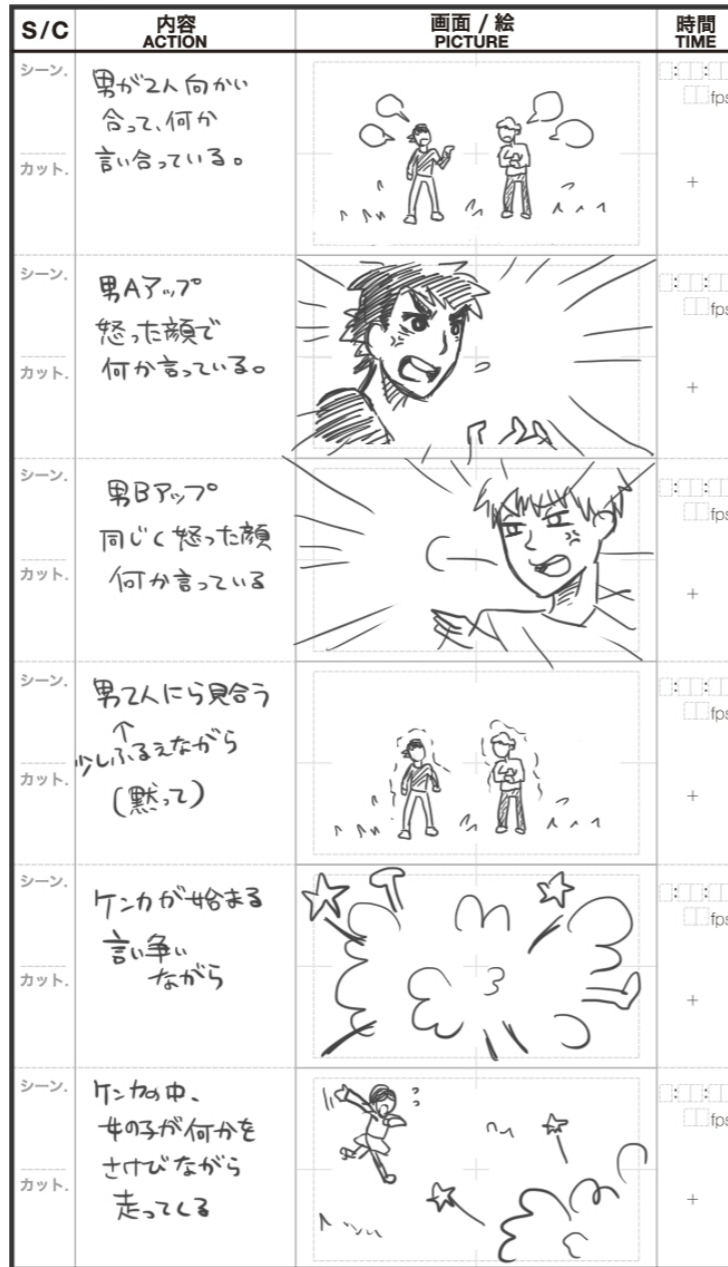 S/C
内容
ACTION
画面 / 絵
PICTURE
時間
TIME
シーン.
男が2人向かい
合って、何か
言い合っている。
カット.
fps
+
シーン.
男Aアップ
怒った顔で
何か言っている。
カット.
fps
+
シーン.
男Bアップ
同じく怒った顔
何か言っている
カット.
fps
+
シーン.
男2人にら見合う
↑
少しふるえながら
(黙って)
カット.
fps
+
シーン.
ケンカが始まる
言い争い
ながら
カット.
fps
+
シーン.
ケンカの中、
女の子が何かを
さけびながら
走ってくる
カット.
fps
+